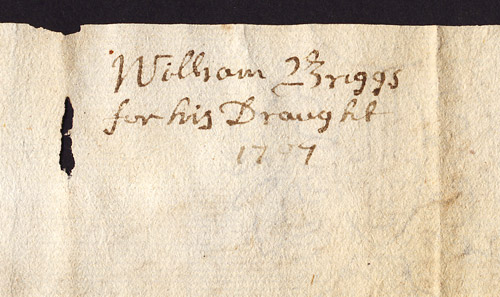 William Briggs
for his Draught
1707